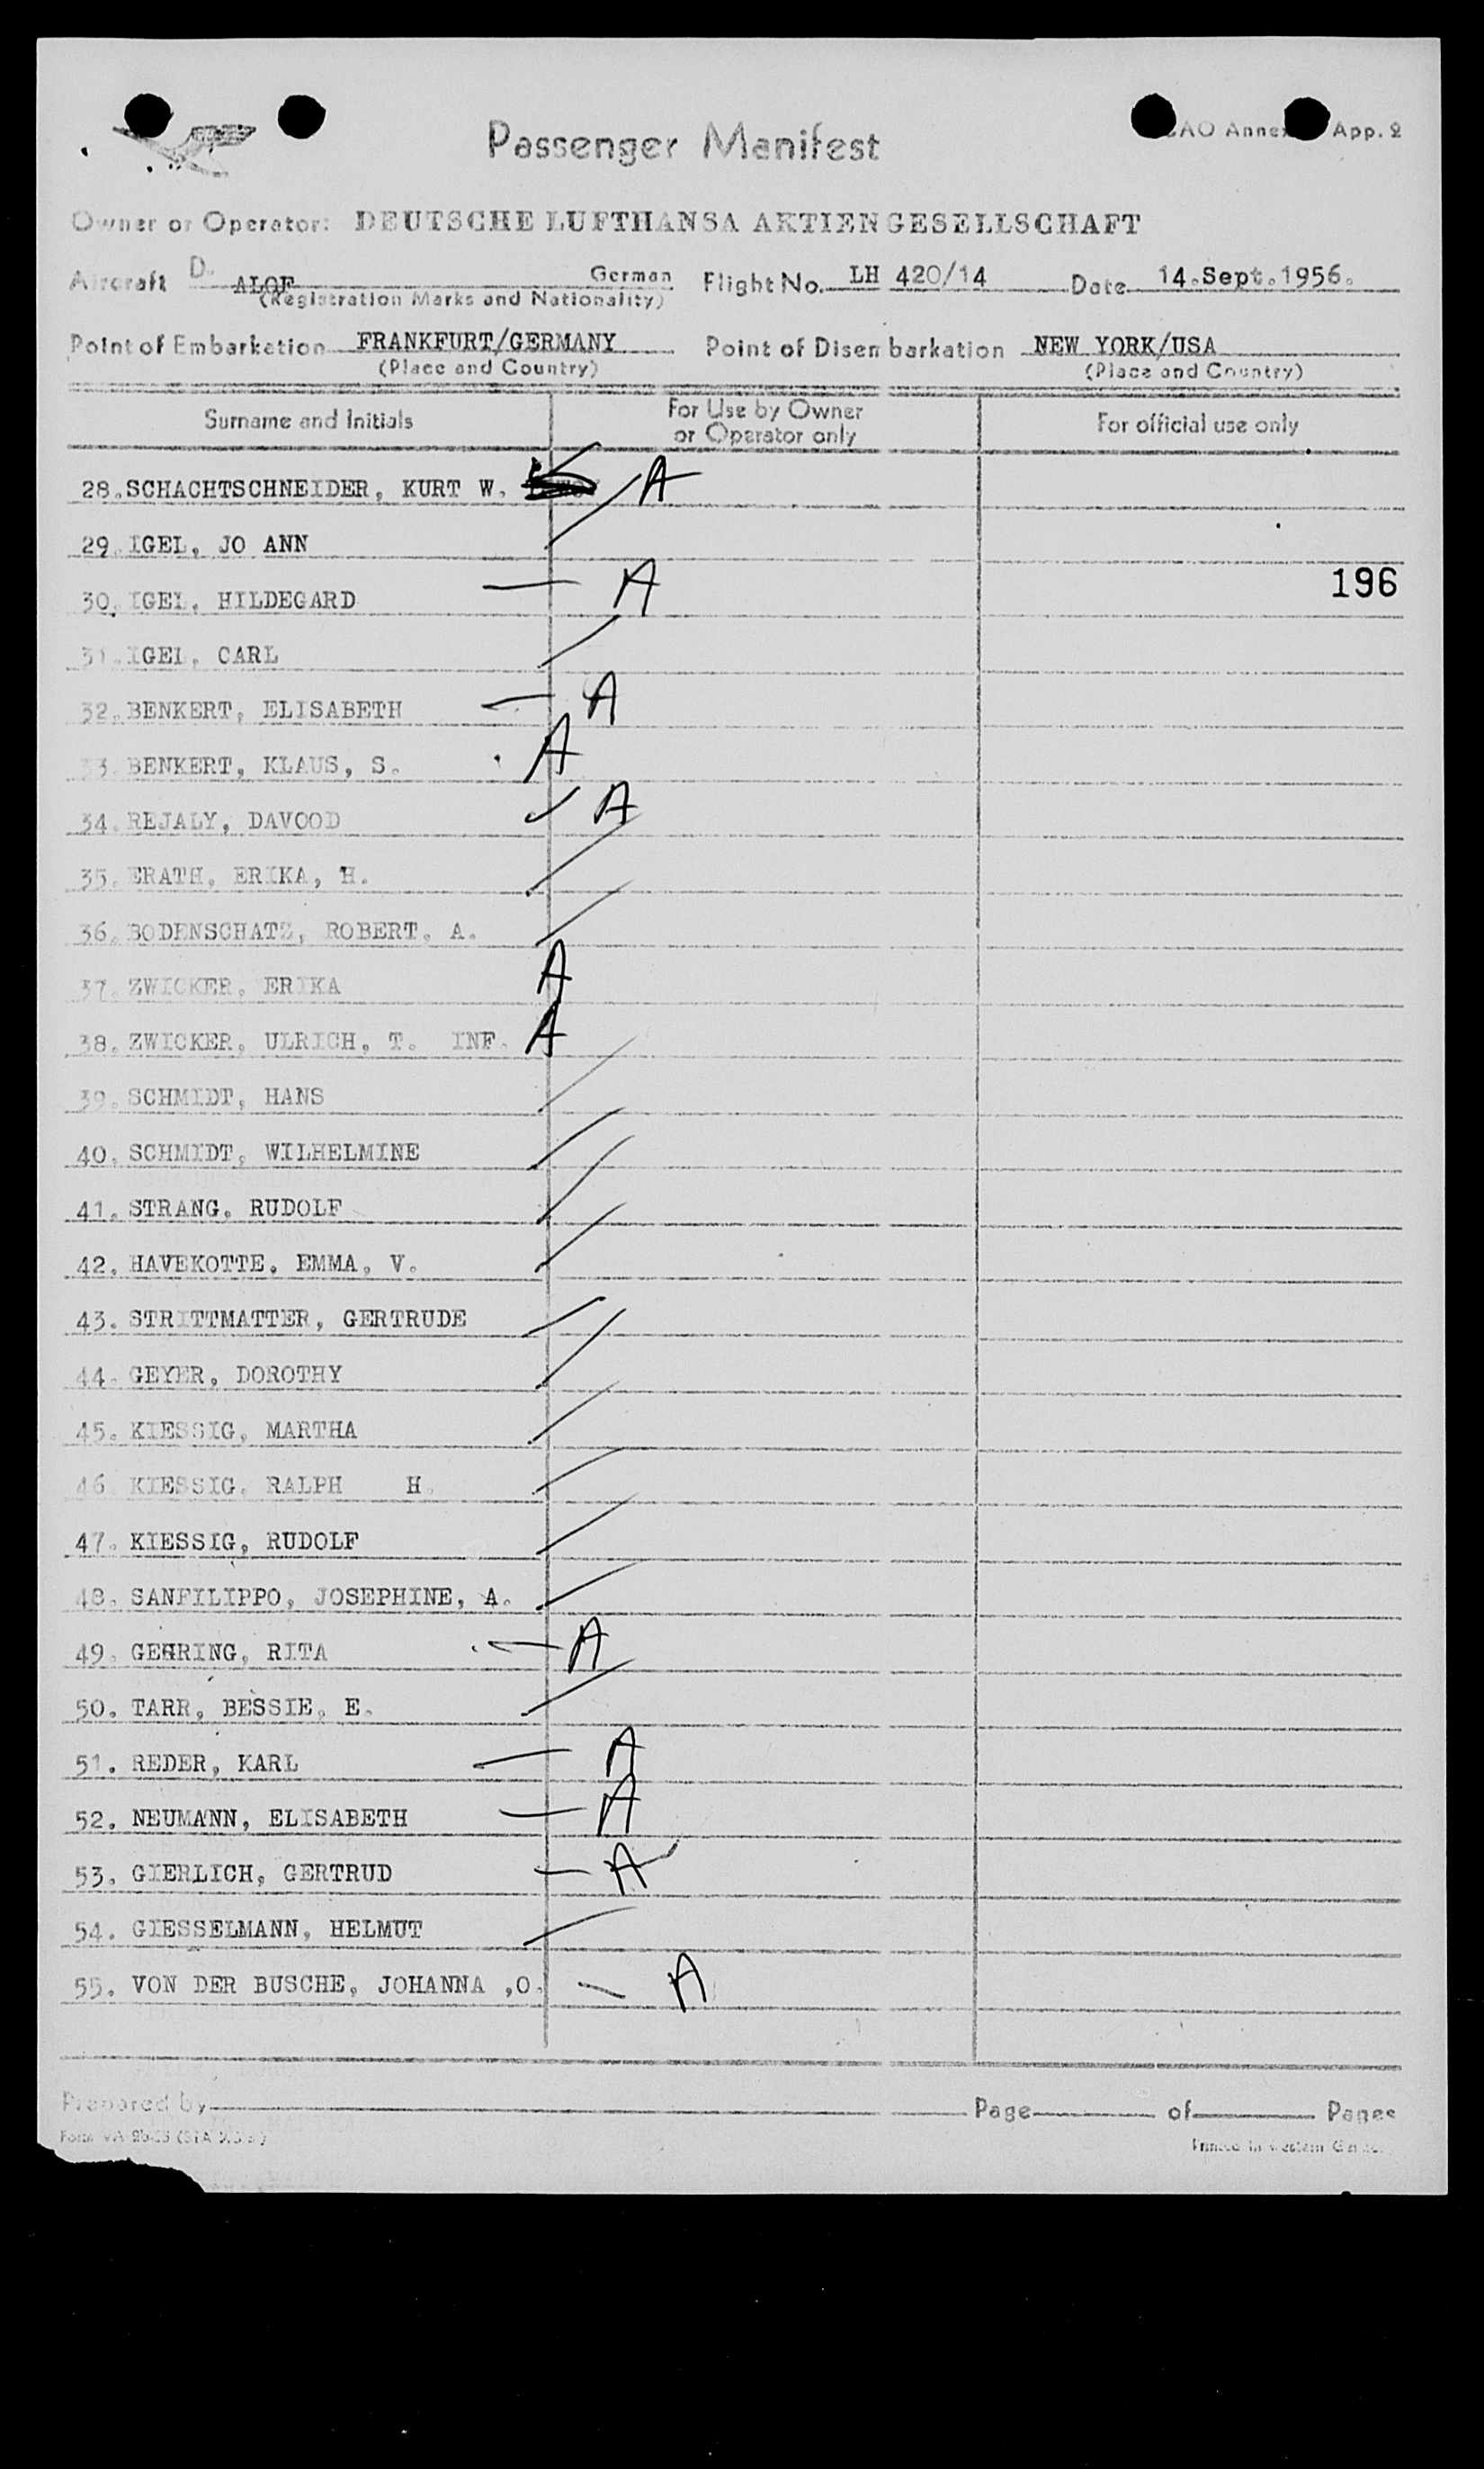 Passenger Manifest
App. 2
Owner or Operator: DEUTSCHE LUFTHANSA AKTIENGESELLSCHAFT
Aircraft D. ALOF German Flight No. LH 420/14 Date 14.Sept.1956.
(Registration Marks and Nationality)
Point of Embarkation FRANKFURT/GERMANY Point of Disembarkation NEW YORK/USA
(Place and Country) (Place and Country)
Surname and Initials For Use by Owner or Operator only For official use only
28. SCHACHTSCHNEIDER, KURT W. A
29. IGEL, JO ANN
30. IGEL, HILDEGARD A 196
31. IGEL, CARL
32. BENKERT, ELISABETH A
33. BENKERT, KLAUS, S. A
34. REJALY, DAVOOD A
35. ERATH, ERIKA, H.
36. BODENSCHATZ, ROBERT, A.
37. ZWICKER, ERIKA A
38. ZWICKER, ULRICH, T. INF. A
39. SCHMIDT, HANS
40. SCHMIDT, WILHELMINE
41. STRANG, RUDOLF
42. HAVEKOTTE, EMMA, V.
43. STRITTMATTER, GERTRUDE
44. GEYER, DOROTHY
45. KIESSIG, MARTHA
46. KIESSIG, RALPH H.
47. KIESSIG, RUDOLF
48. SANFILIPPO, JOSEPHINE, A.
49. GEHRING, RITA A
50. TARR, BESSIE, E.
51. REDER, KARL A
52. NEUMANN, ELISABETH A
53. GIERLICH, GERTRUD A
54. GIESSELMANN, HELMUT
55. VON DER BUSCHE, JOHANNA ,O. A
Prepared by Page of Pages
Form
Printed in Western